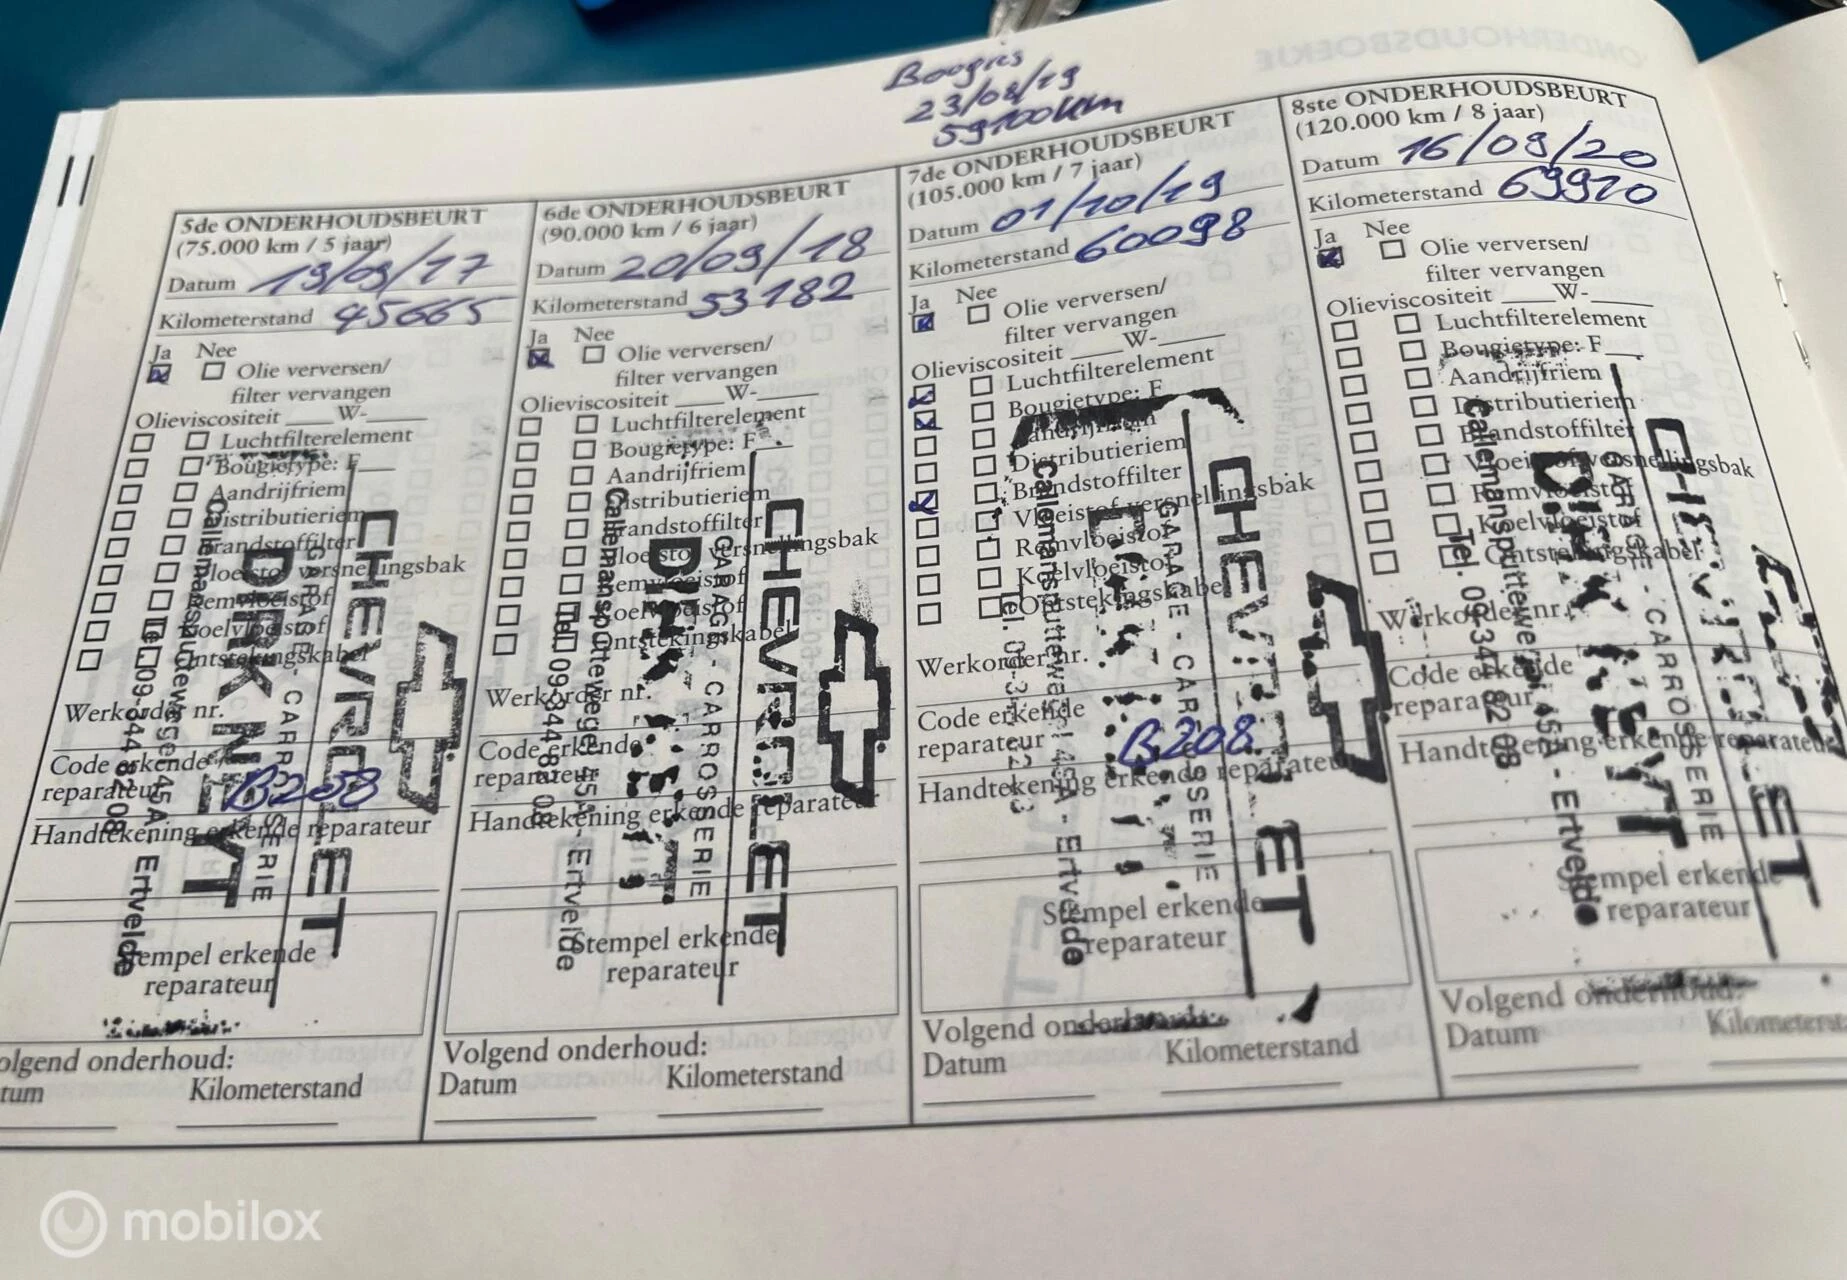 Bougies
23/08/19
59100km
5de ONDERHOUDSBEURT
(75.000 km / 5 jaar)
Datum 19/09/17
Kilometerstand 45665
Ja Nee
Olie verversen/
filter vervangen
Olieviscositeit ____W-____
Luchtfilterelement
Bougietype: F___
Aandrijfriem
Distributieriem
Brandstoffilter
Vloeistof versnellingsbak
Remvloeistof
Koelvloeistof
Ontstekingskabel
Werkorder nr.
Code erkende
reparateur B208
Handtekening erkende reparateur
CHEVROLET
GARAGE - CARROSSERIE
DIRK NEYT
Callemansputtewege 45A - Ertvelde
Tel. 09-344 82 08
Stempel erkende
reparateur
Volgend onderhoud:
Datum Kilometerstand
6de ONDERHOUDSBEURT
(90.000 km / 6 jaar)
Datum 20/09/18
Kilometerstand 53182
Ja Nee
Olie verversen/
filter vervangen
Olieviscositeit ____W-____
Luchtfilterelement
Bougietype: F___
Aandrijfriem
Distributieriem
Brandstoffilter
Vloeistof versnellingsbak
Remvloeistof
Koelvloeistof
Ontstekingskabel
Werkorder nr.
Code erkende
reparateur
Handtekening erkende reparateur
CHEVROLET
GARAGE - CARROSSERIE
Callemansputtewege 45A - Ertvelde
Tel. 09-344 82 08
Stempel erkende
reparateur
Volgend onderhoud:
Datum Kilometerstand
7de ONDERHOUDSBEURT
(105.000 km / 7 jaar)
Datum 01/10/19
Kilometerstand 60098
Ja Nee
Olie verversen/
filter vervangen
Olieviscositeit ____W-____
Luchtfilterelement
Bougietype: F
Aandrijfriem
Distributieriem
Brandstoffilter
Vloeistof versnellingsbak
Remvloeistof
Koelvloeistof
Ontstekingskabel
Werkorder nr.
Code erkende
reparateur B208
Handtekening erkende reparateur
CHEVROLET
GARAGE - CARROSSERIE
Callemansputtewege 45A - Ertvelde
Stempel erkende
reparateur
Volgend onderhoud:
Datum Kilometerstand
8ste ONDERHOUDSBEURT
(120.000 km / 8 jaar)
Datum 16/09/20
Kilometerstand 69910
Ja Nee
Olie verversen/
filter vervangen
Olieviscositeit ____W-____
Luchtfilterelement
Bougietype: F___
Aandrijfriem
Distributieriem
Brandstoffilter
Vloeistof versnellingsbak
Remvloeistof
Koelvloeistof
Ontstekingskabel
Werkorder nr.
Code erkende
reparateur
Handtekening erkende reparateur
GARAGE - CARROSSERIE
Callemansputtewege 45A - Ertvelde
Tel. 09-344 82 08
Stempel erkende
reparateur
Volgend onderhoud:
Datum Kilometerst
mobilox